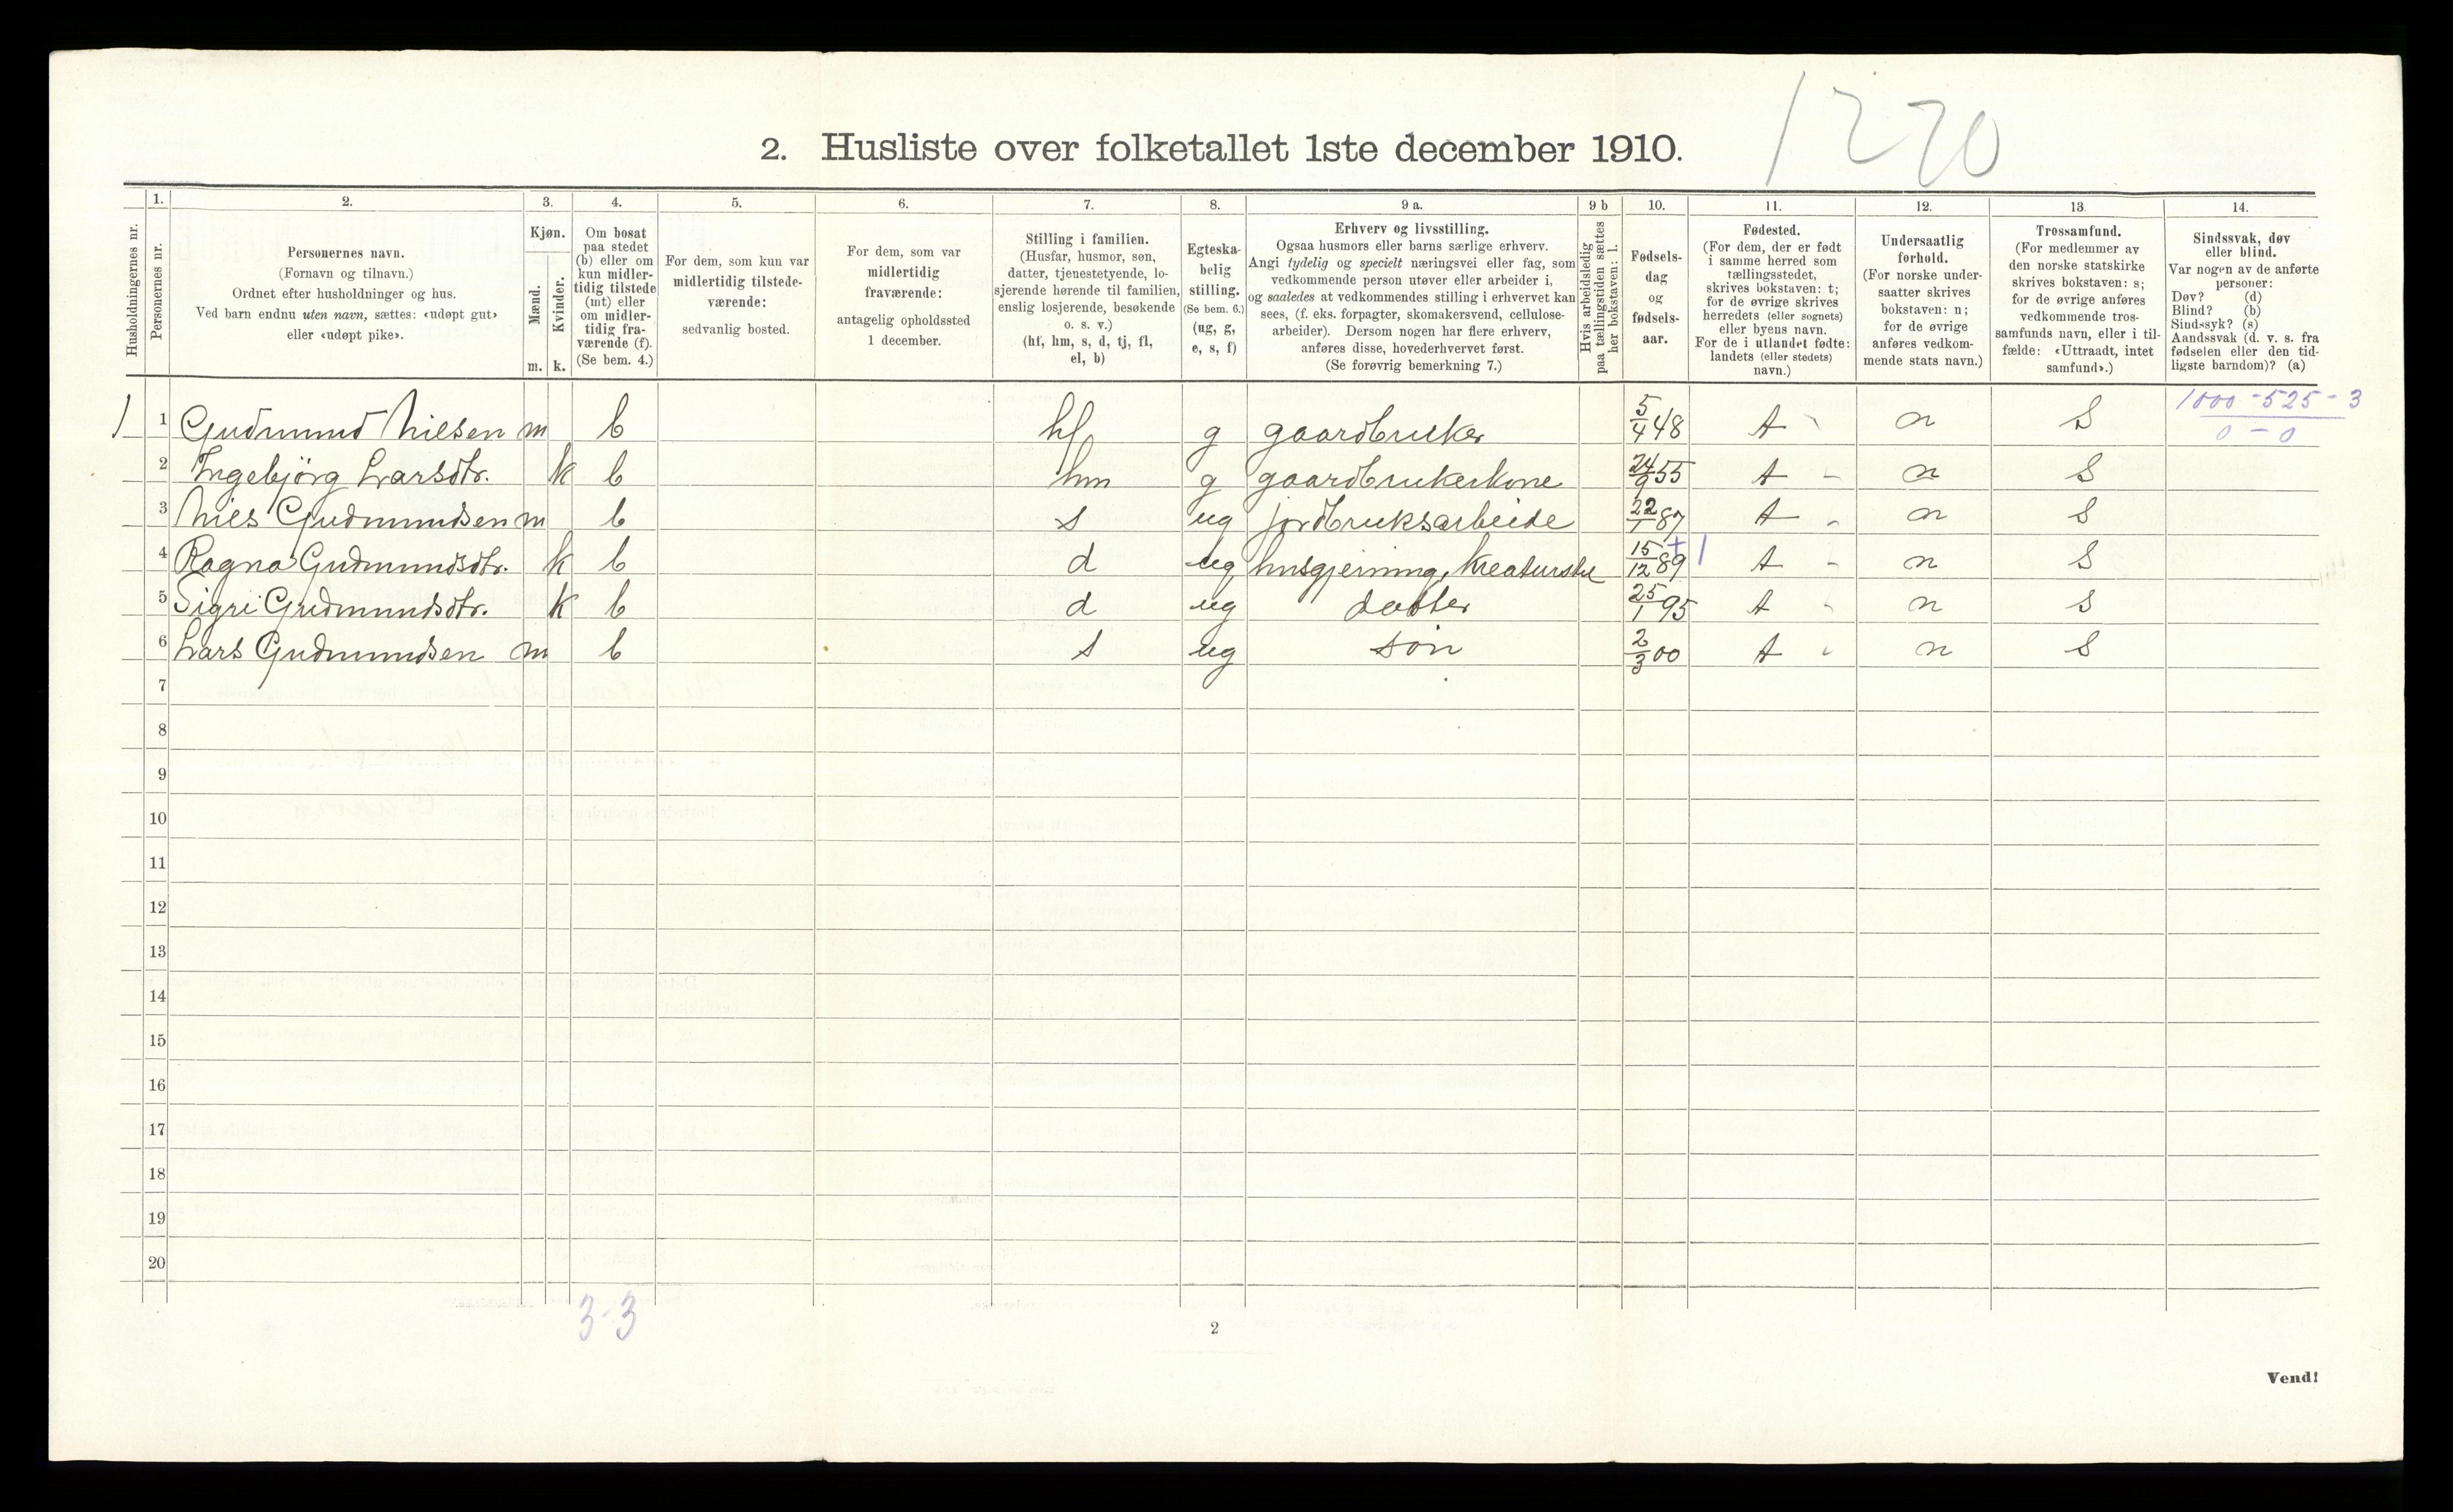 1270
2. Husliste over folketallet 1ste december 1910.
Husholdningernes nr.
1.
Personernes nr.
2.
Personernes navn.
(Fornavn og tilnavn.)
Ordnet efter husholdninger og hus.
Ved barn endnu uten navn, sættes: «udøpt gut»
eller «udøpt pike».
3.
Kjøn.
Mænd.
Kvinder.
m.
k.
4.
Om bosat
paa stedet
(b) eller om
kun midler-
tidig tilstede
(mt) eller
om midler-
tidig fra-
værende (f).
(Se bem. 4.)
5.
For dem, som kun var
midlertidig tilstede-
værende:
sedvanlig bosted.
6.
For dem, som var
midlertidig
fraværende:
antagelig opholdssted
1 december.
7.
Stilling i familien.
(Husfar, husmor, søn,
datter, tjenestetyende, lo-
sjerende hørende til familien,
enslig losjerende, besøkende
o. s. v.)
(hf, hm, s, d, tj, fl,
el, b)
8.
Egteska-
belig
stilling.
(Se bem. 6.)
(ug, g,
e, s, f)
9 a.
Erhverv og livsstilling.
Ogsaa husmors eller barns særlige erhverv.
Angi tydelig og specielt næringsvei eller fag, som
vedkommende person utøver eller arbeider i,
og saaledes at vedkommendes stilling i erhvervet kan
sees, (f. eks. forpagter, skomakersvend, cellulose-
arbeider). Dersom nogen har flere erhverv,
anføres disse, hovederhvervet først.
(Se forøvrig bemerkning 7.)
9 b
Hvis arbeidsledig
paa tællingstiden sættes
her bokstaven: l.
10.
Fødsels-
dag
og
fødsels-
aar.
11.
Fødested.
(For dem, der er født
i samme herred som
tællingsstedet,
skrives bokstaven: t;
for de øvrige skrives
herredets (eller sognets)
eller byens navn.
For de i utlandet fødte:
landets (eller stedets)
navn.)
12.
Undersaatlig
forhold.
(For norske under-
saatter skrives
bokstaven: n;
for de øvrige
anføres vedkom-
mende stats navn.)
13.
Trossamfund.
(For medlemmer av
den norske statskirke
skrives bokstaven: s;
for de øvrige anføres
vedkommende tros-
samfunds navn, eller i til-
fælde: «Uttraadt, intet
samfund».)
14.
Sindssvak, døv
eller blind.
Var nogen av de anførte
personer:
Døv? (d)
Blind? (b)
Sindssyk? (s)
Aandssvak (d. v. s. fra
fødselen eller den tid-
ligste barndom)? (a)
1 1 Gudmund Nilsen m b hf g gaardbruker 5/4 48 t n S 1000-525-3
0-0
2 Ingebjörg Larsdtr. k b hm g gaardbrukerkone 24/9 55 t n S
3 Nils Gudmundsen m b s ug jordbruksarbeide 22/1 87 t n S
4 Ragna Gudmundsdtr. k b d ug husgjerning, kreaturstel 15/12 89 + 1 t n S
5 Sigri Gudmundsdtr. k b d ug datter 25/1 95 t n S
6 Lars Gudmundsen m b s ug søn 2/3 00 t n S
7
8
9
10
11
12
13
14
15
16
17
18
19
20
3-3
2
Vend!